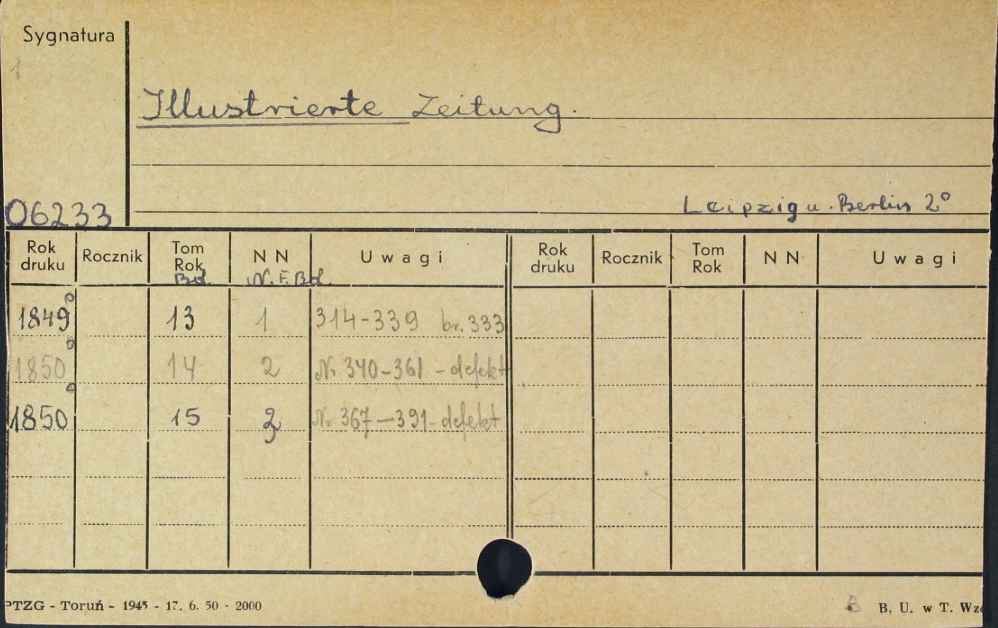 Sygnatura
Illustrierte Zeitung.
06233
Leipzig u. Berlin 2°
Rok druku Rocznik Tom Rok Bd. N N N. F. Bd. Uwagi Rok druku Rocznik Tom Rok N N Uwagi
1849 13 1 314-339 br. 333
1850 14 2 Nr 340-361 - defekt
1850 15 3 Nr. 367-391 - defekt
PTZG - Toruń - 1945 - 17. 6. 50 - 2000
B. U. w T. Wz